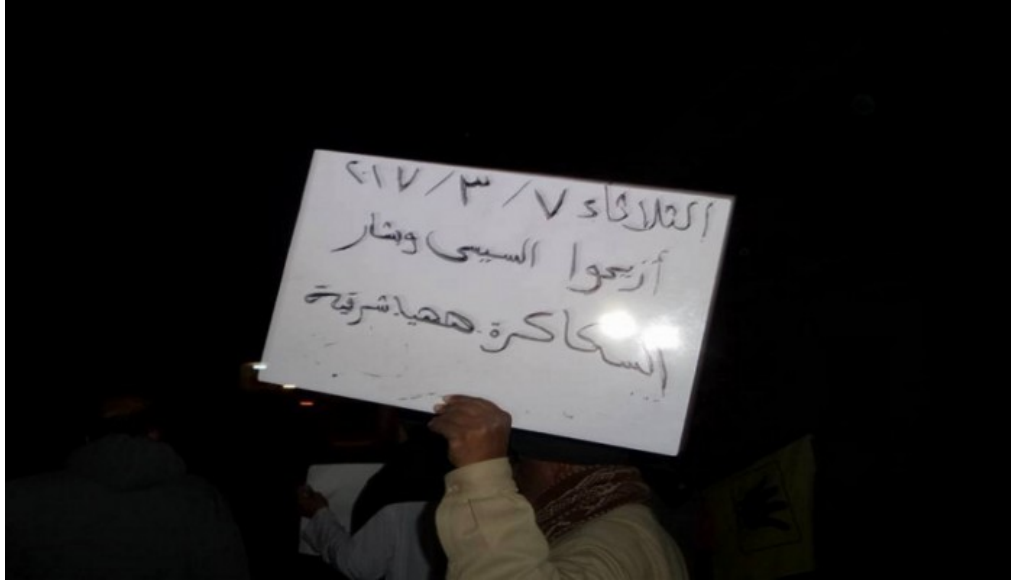 الثلاثاء ٧ / ٣ / ٢٠١٧
أزيحوا السيسى وبشار
السكاكرة ههيا شرقية